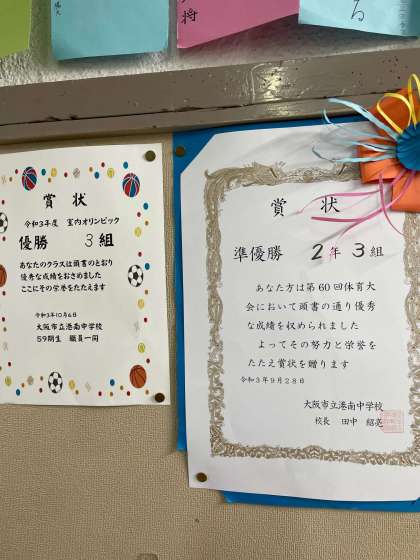 将
る
賞 状
令和3年度 室内オリンピック
優勝 3組
あなたのクラスは頭書のとおり
優秀な成績をおさめました
ここにその栄誉をたたえます
令和3年10月6日
大阪市立港南中学校
59期生 職員一同
賞 状
準優勝 2年3組
あなた方は第60回体育大
会において頭書の通り優秀
な成績を収められました
よってその努力と栄誉を
たたえ賞状を贈ります
令和3年9月28日
大阪市立港南中学校
校長 田中 紹亮